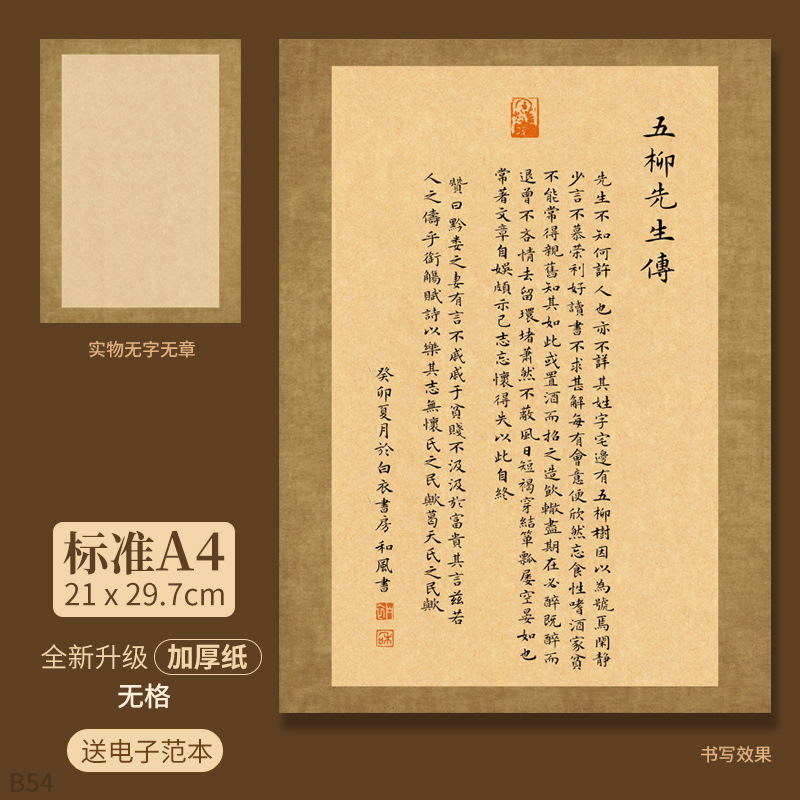 实物无字无章
标准A4
21 x 29.7cm
全新升级 加厚纸
无格
送电子范本
B54
五柳先生傳
先生不知何許人也亦不詳其姓字宅邊有五柳樹因以為號焉閑靜
少言不慕荣利好讀書不求甚解每有會意便欣然忘食性嗜酒家貧
不能常得親舊知其如此或置酒而招之造飲輒盡期在必醉既醉而
退曾不吝情去留環堵蕭然不蔽風日短褐穿結簞瓢屢空晏如也
常著文章自娛頗示己志忘懷得失以此自終
贊曰黔婁之妻有言不戚戚于貧賤不汲汲於富貴其言茲若
人之儔乎銜觴賦詩以樂其志無懷氏之民歟葛天氏之民歟
癸卯夏月於白衣書房 和風書
书写效果